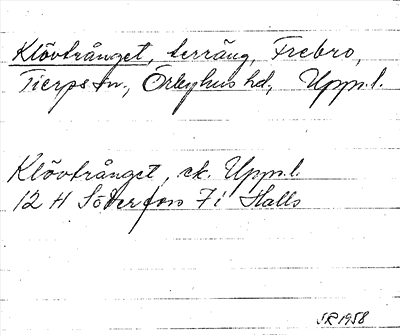 Klövtrånget, terräng, Frebro,
Tierps sn., Örbyhus hd., Uppml.
Klövtrånget, ek. Uppml.
12 H Söderfors 7i Halls
SR 1958